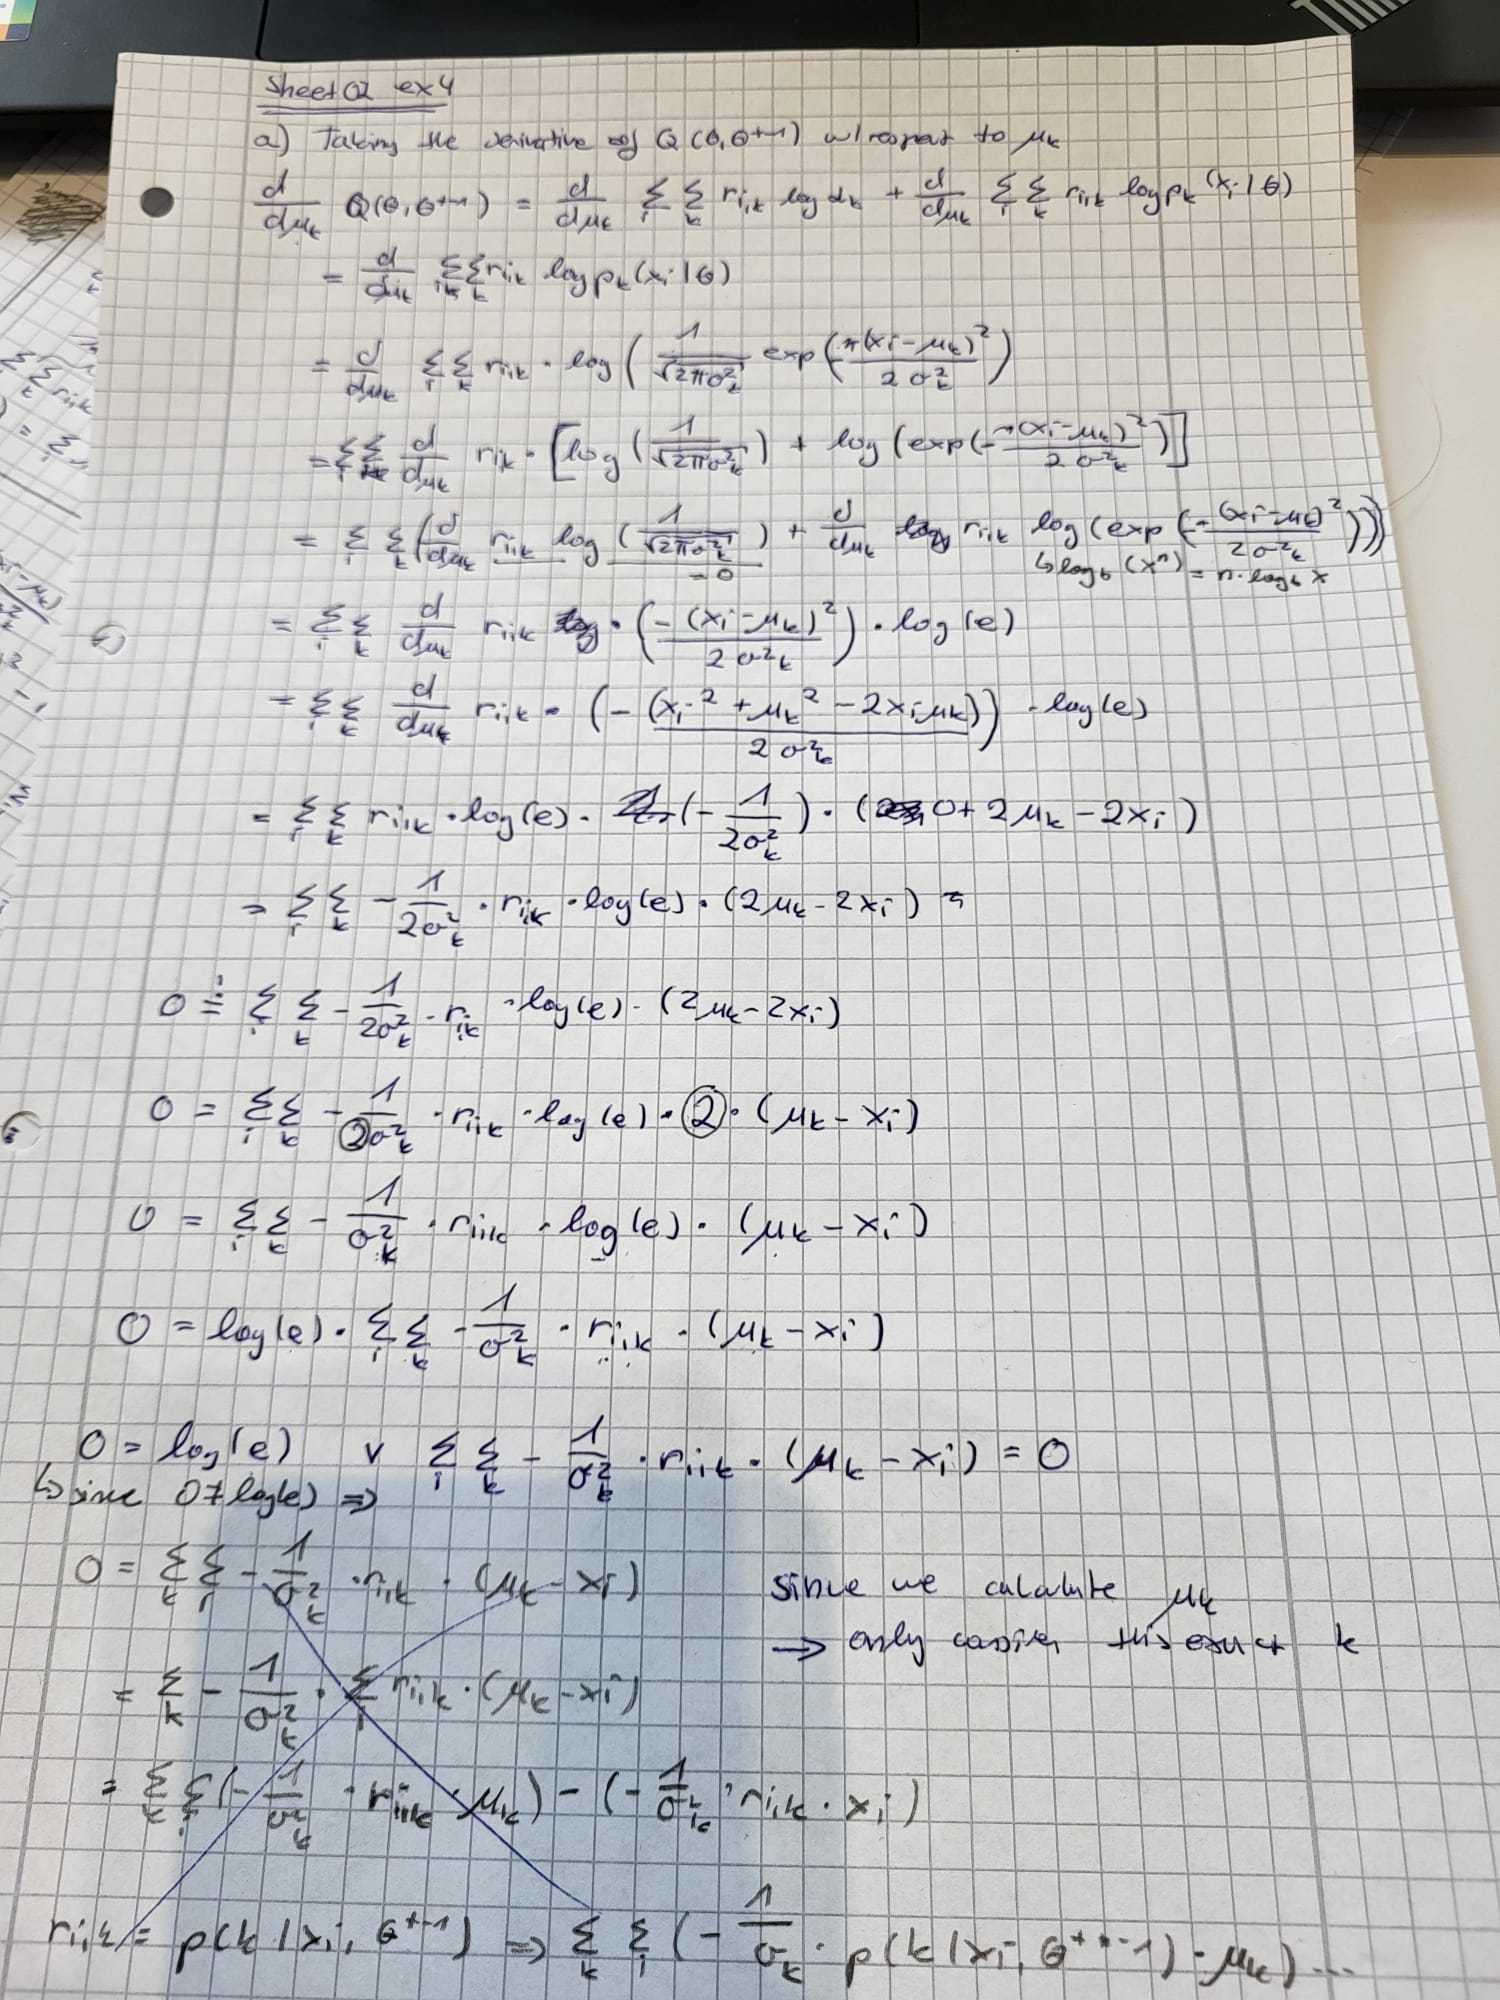 Sheet 02 ex 4
a) Taking the derivative of Q(θ, θ^{t-1}) w/ respect to μ_k
d/dμ_k Q(θ, θ^{t-1}) = d/dμ_k Σ_i Σ_k r_{i,k} log α_k + d/dμ_k Σ_i Σ_k r_{i,k} log p_k(x_i|θ)
= d/dμ_k Σ_i Σ_k r_{i,k} log p_k(x_i|θ)
= d/dμ_k Σ_i Σ_k r_{i,k} · log ( 1/√(2πσ_k²) exp( -(x_i-μ_k)² / 2σ_k² )
= Σ_i Σ_k d/dμ_k r_{i,k} · [ log ( 1/√(2πσ_k²) ) + log (exp( -(x_i-μ_k)² / 2σ_k² ) ]
= Σ_i Σ_k ( d/dμ_k r_{i,k} log ( 1/√(2πσ_k²) ) + d/dμ_k r_{i,k} log (exp( -(x_i-μ_k)² / 2σ_k² )))
= 0 ↳ log_b (x^n) = n · log_b x
= Σ_i Σ_k d/dμ_k r_{i,k} · ( -(x_i-μ_k)² / 2σ_k² ) · log(e)
= Σ_i Σ_k d/dμ_k r_{i,k} · ( - (x_i² + μ_k² - 2x_iμ_k) / 2σ_k² ) · log(e)
= Σ_i Σ_k r_{i,k} · log(e) · (- 1/2σ_k² ) · ( 0 + 2μ_k - 2x_i )
= Σ_i Σ_k - 1/2σ_k² · r_{i,k} · log(e) · (2μ_k - 2x_i) =
0 =! Σ_i Σ_k - 1/2σ_k² · r_{i,k} · log(e) · (2μ_k - 2x_i)
0 = Σ_i Σ_k - 1/2σ_k² · r_{i,k} · log(e) · 2 · (μ_k - x_i)
0 = Σ_i Σ_k - 1/σ_k² · r_{i,k} · log(e) · (μ_k - x_i)
0 = log(e) · Σ_i Σ_k - 1/σ_k² · r_{i,k} · (μ_k - x_i)
0 = log(e) ∨ Σ_i Σ_k - 1/σ_k² · r_{i,k} · (μ_k - x_i) = 0
↳ since 0 ≠ log(e) ⇒
0 = Σ_k Σ_i - 1/σ_k² · r_{i,k} · (μ_k - x_i)
since we calculate μ_k
→ only this exact k
= Σ_k - 1/σ_k² · Σ_i r_{i,k} · (μ_k - x_i)
= Σ_k Σ_i (- 1/σ_k² · r_{i,k} · μ_k) - (- 1/σ_k² · r_{i,k} · x_i)
r_{i,k} = p(k|x_i, θ^{t-1}) ⇒ Σ_k Σ_i (- 1/σ_k · p(k|x_i, θ^{t-1}) · μ_k) ...